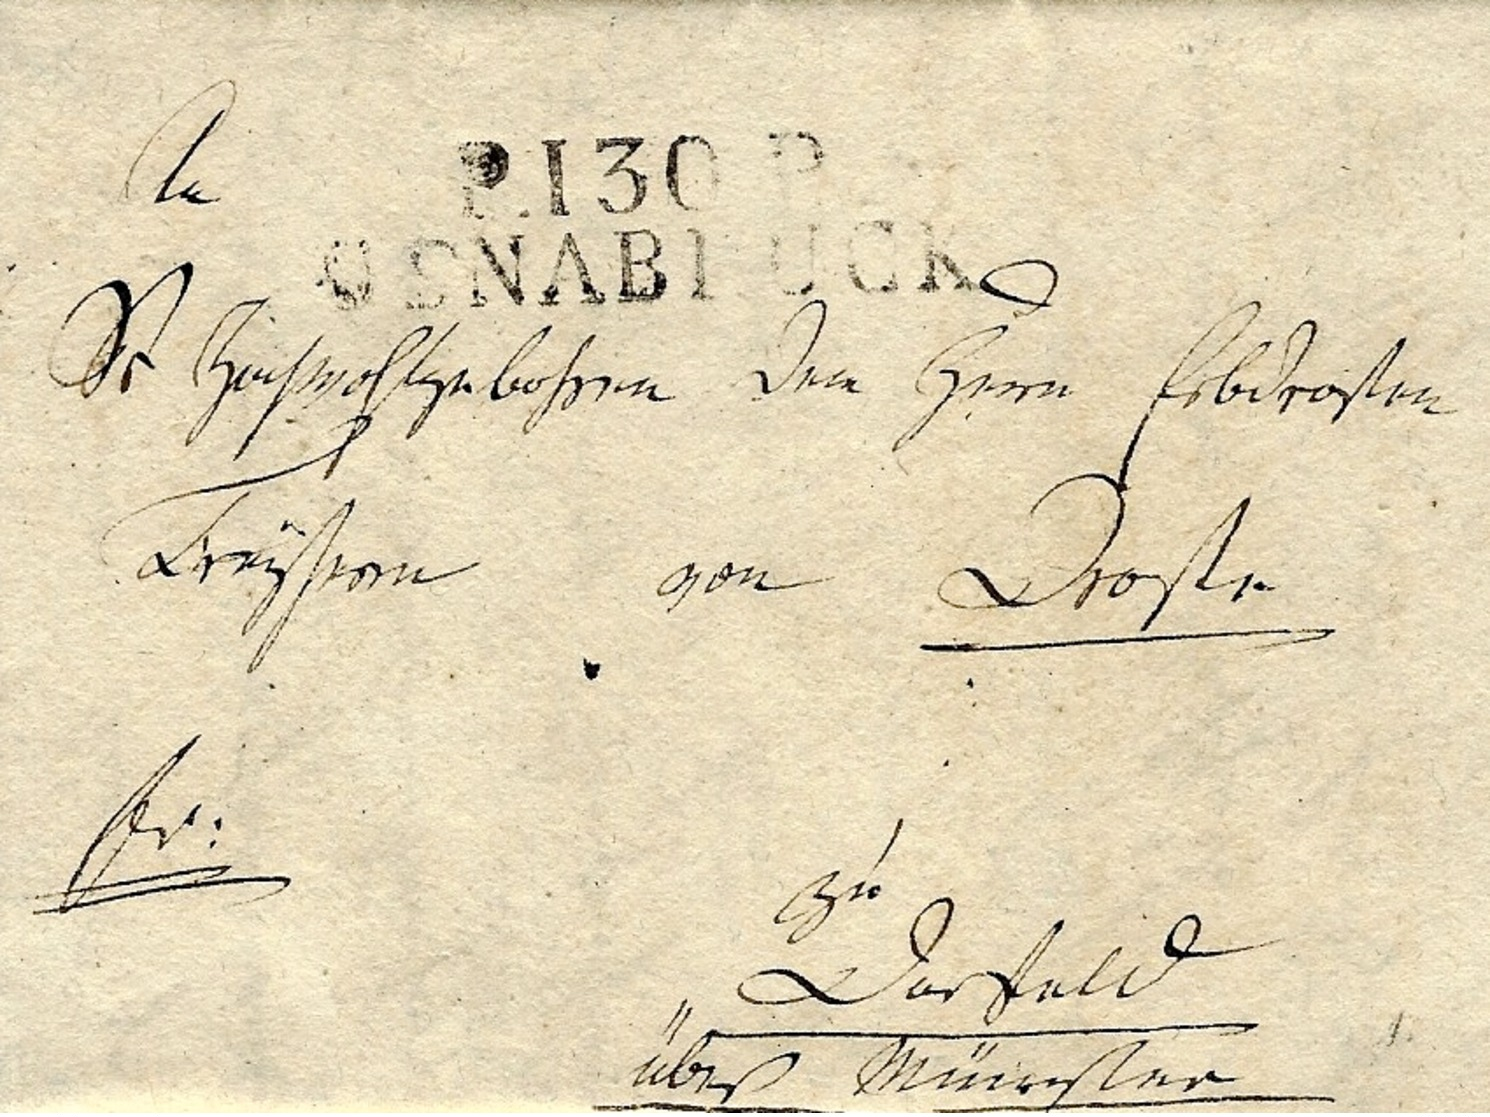 An
P.130 P.
OSNABRUCK
Sr Hochwohlgebohren dem Herrn Erbdrosten
Freyherrn von Droste
fr:
zu
Darfeld
über Münster